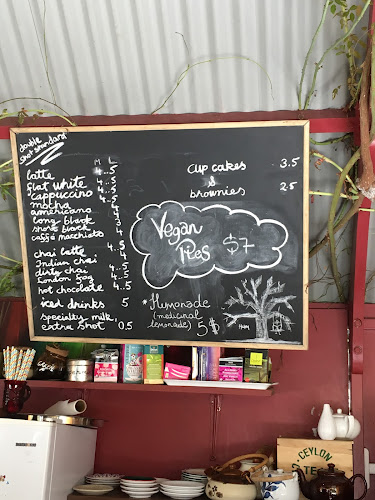 double
shot standard
M L
latte 4..5
flat white 4..5
cappuccino 4..5
mocha 4..5
americano 4
long black 4
short black 3
caffé macchiato 4
chai latte 4..5
Indian chai 4
dirty chai 4..5
london fog 4..5
hot chocolate 4..5
iced drinks 5
specialty milk,
extra shot 0.5
cup cakes 3.5
&
brownies 2.5
Vegan
Pies $7
* Humonade
(medicinal
lemonade) 5$
CEYLON
TE